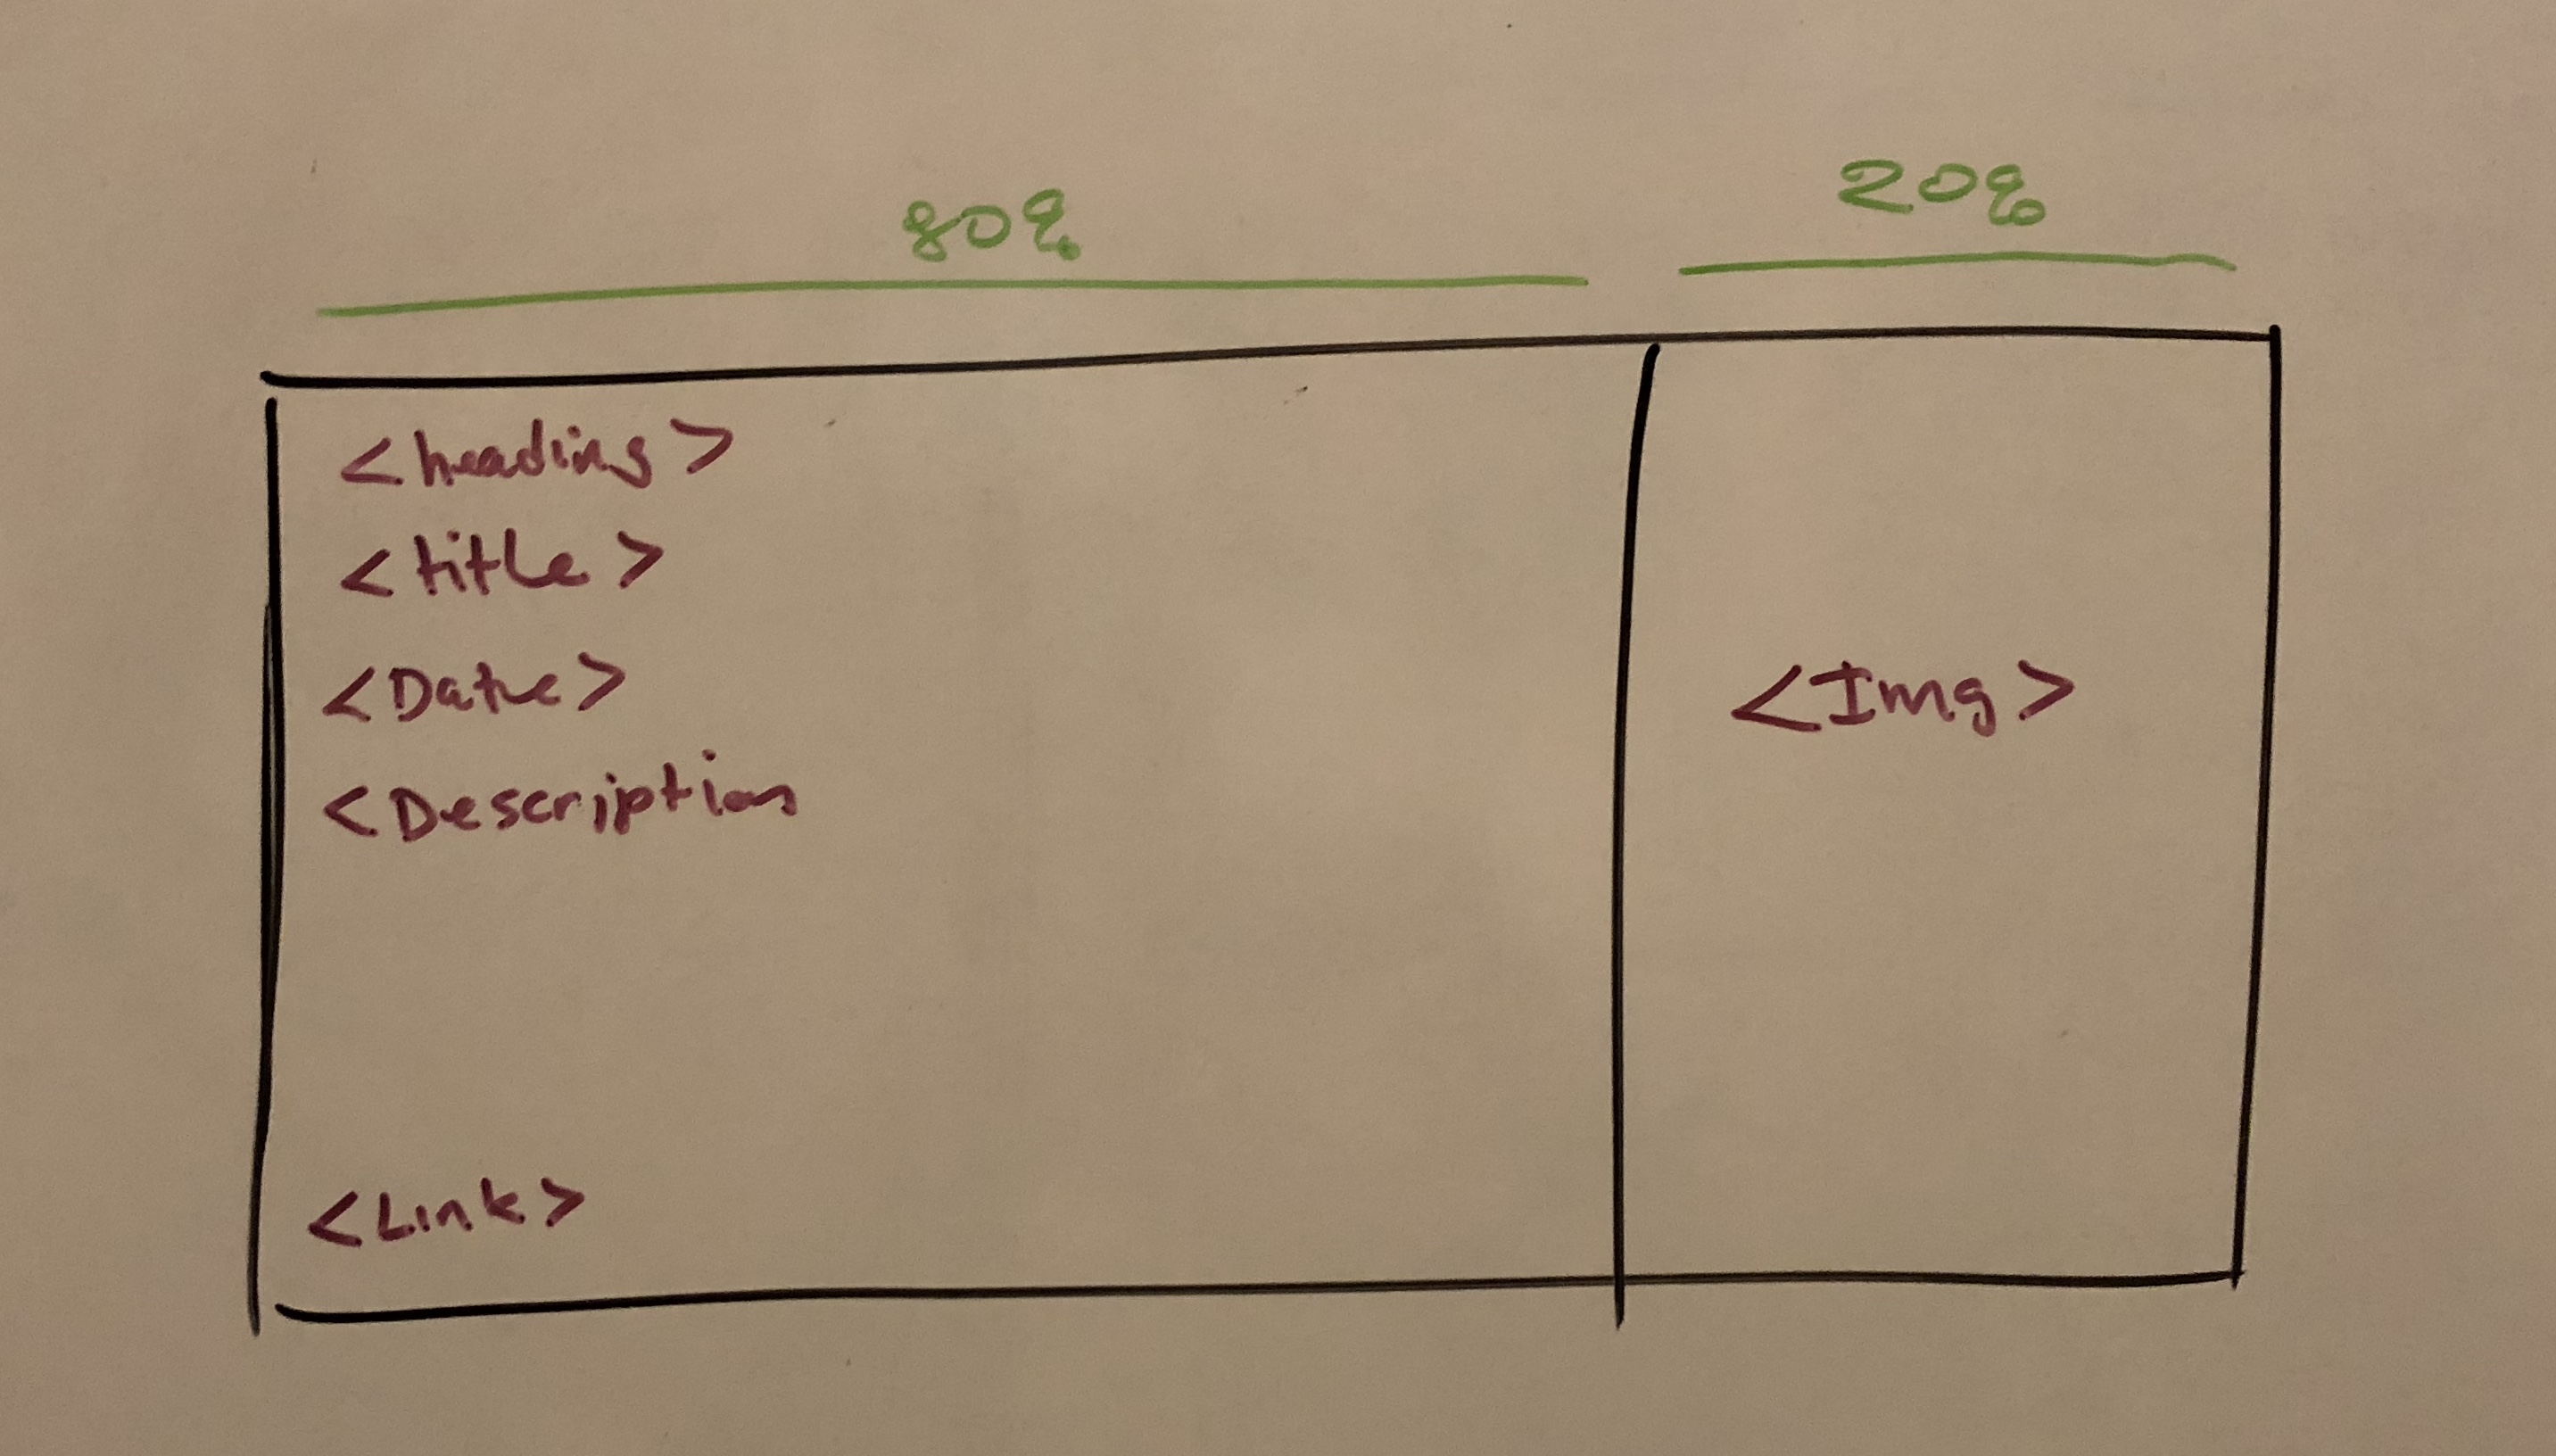 80%
20%
<heading>
<title>
<Date>
<Description
<Img>
<Link>